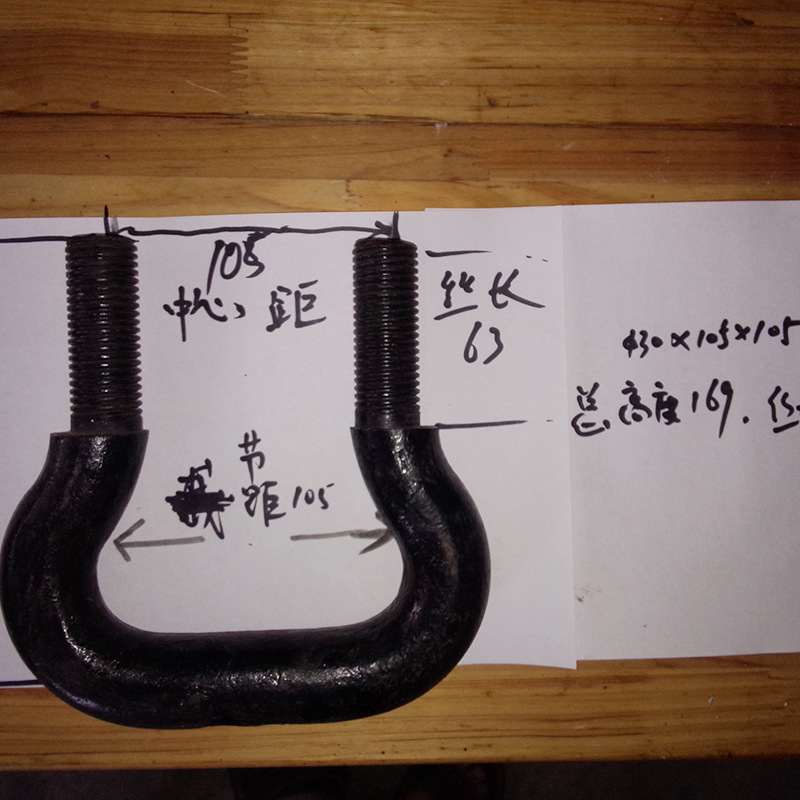 105
中心距
丝长
63
节
距105
φ30×105×105
总高度169.丝